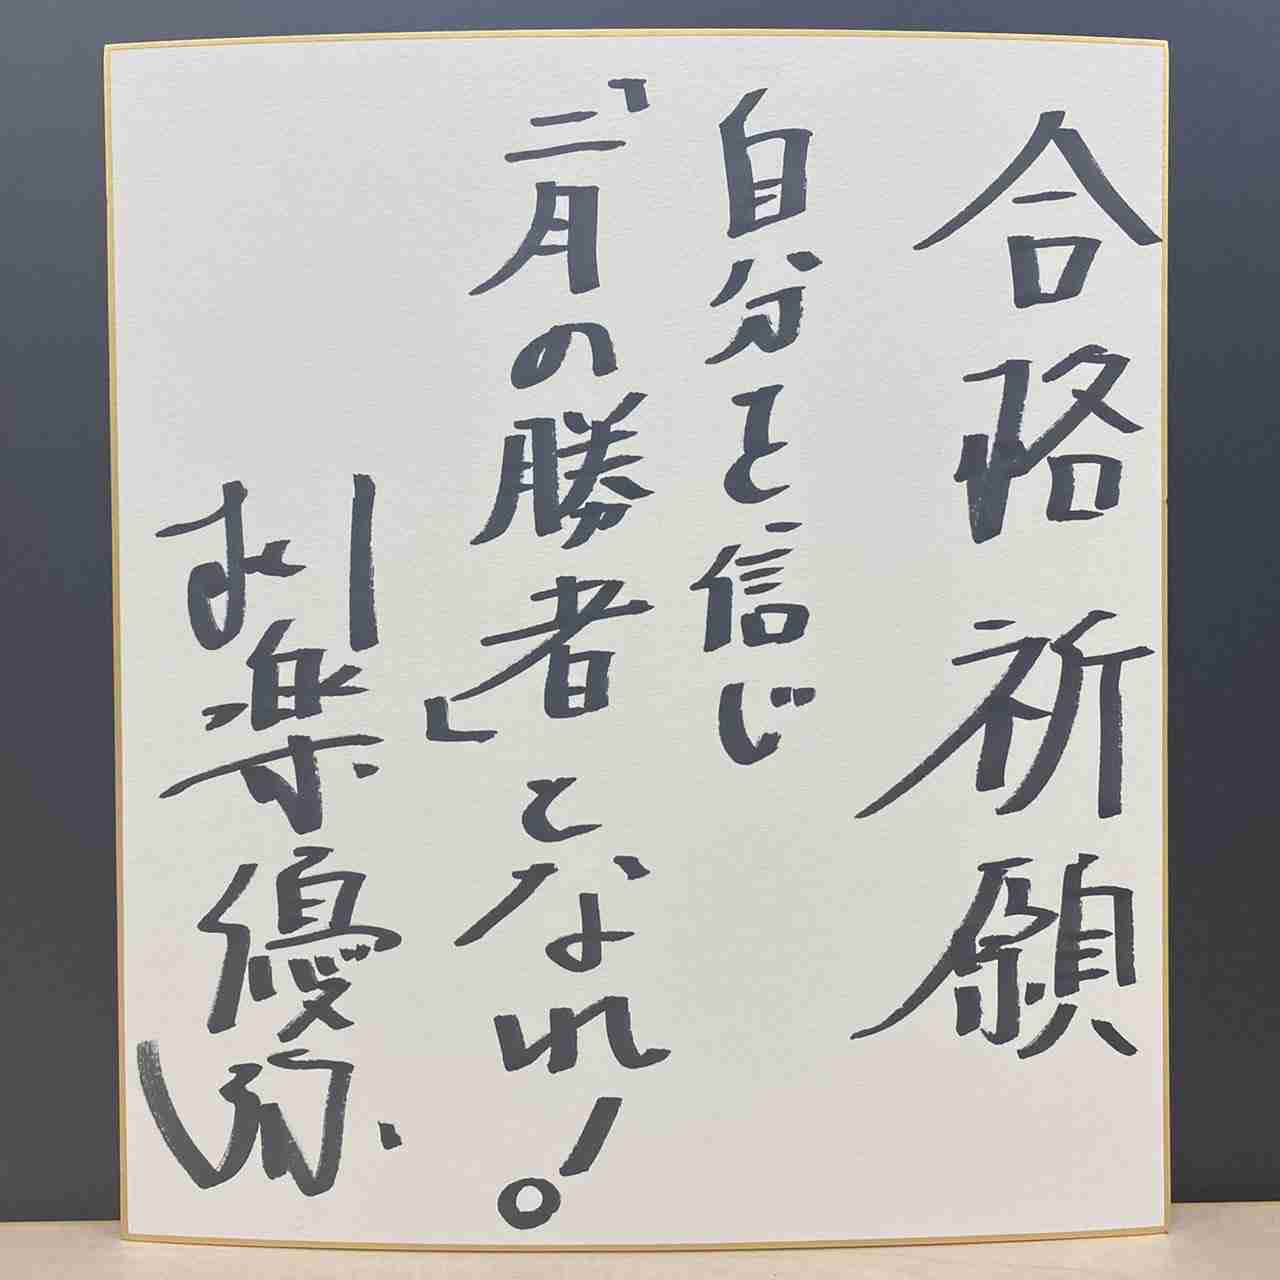 合格祈願
自分を信じ
「二月の勝者」となれ!